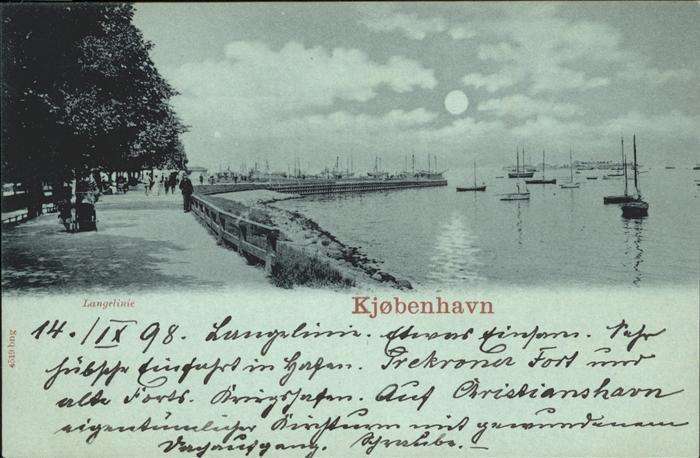 Langelinie
Kjøbenhavn
4519 hng
14./IX 98. Langelinie. Etwas Einsam. Sehr
hübsche Einfahrt in Hafen. Trekroner Fort und
alte Forts. Kriegshafen. Auf Christianshavn
eigentümlicher Kirchturm mit gewundenem
Dachaufgang. Schraube.